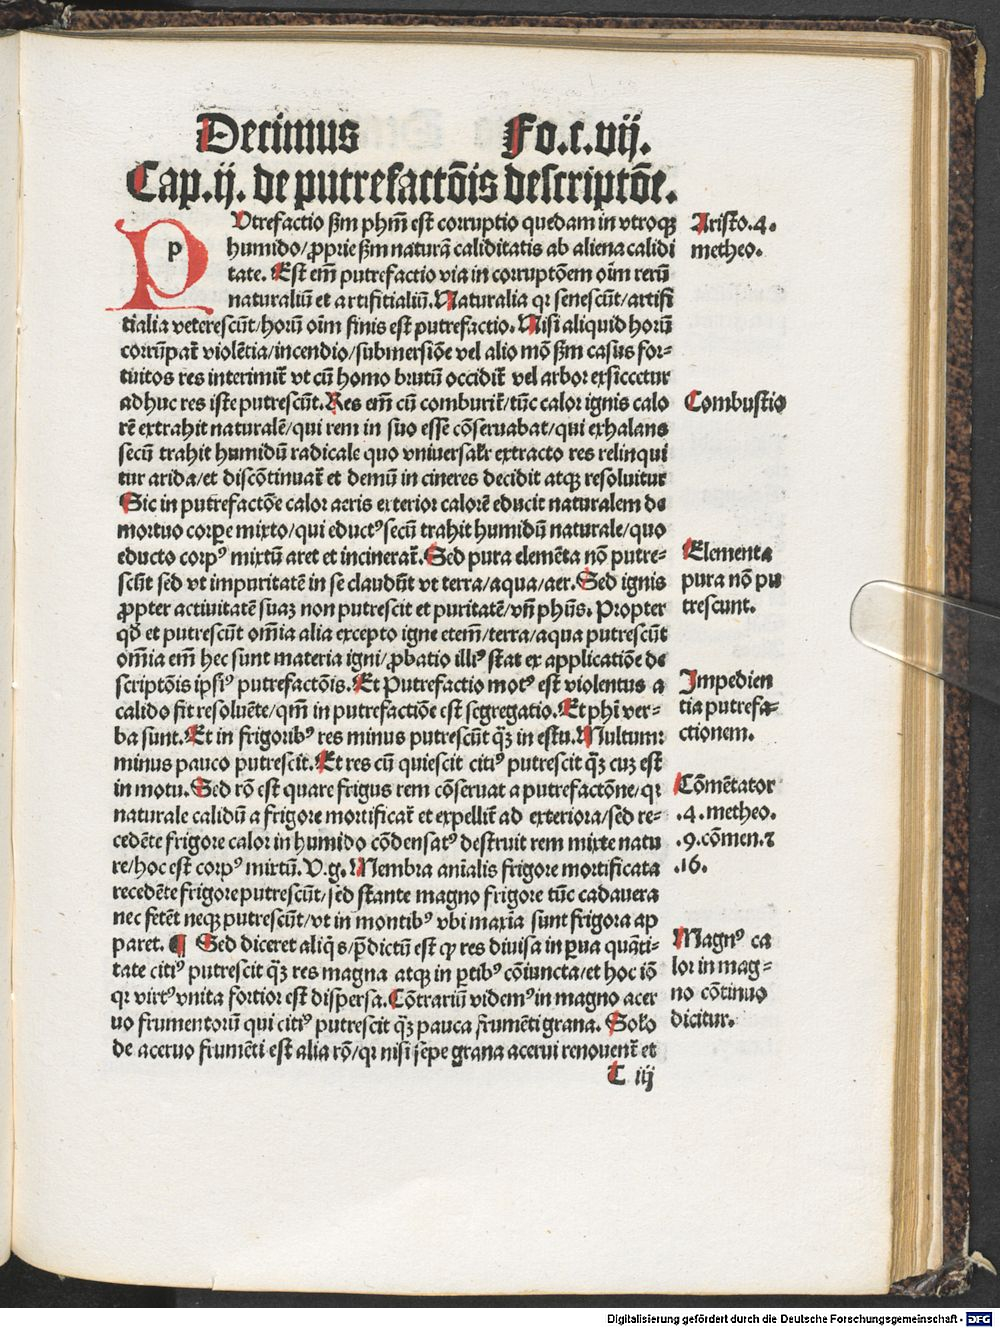 Decimus Fo.c.vij.
Cap.ij. de putrefactōis descriptōe.
PVtrefactio ẜm phm̄ est corruptio quedam in vtroq̄ꝫ
humido/ ꝓprie ẜm naturā caliditatis ab aliena calidi
tate. Est em̄ putrefactio via in corruptōem oīm rerū
naturaliū et artifitialiū. Naturalia qꝛ senescūt/ artifi
tialia veterescūt/ horū oīm finis est putrefactio. Nisi aliquid horū
corrūpat̄ violētia/ incendio/ submersiōe vel alio mō ẜm casus for⸗
tuitos res interimit̄ vt cū homo brutū occidit̄ vel arbor exsiccetur
adhuc res iste putrescūt. Res em̄ cū comburit̄/ tūc calor ignis calo
rē extrahit naturalē/ qui rem in suo esse cōseruabat/ qui exhalans
secū trahit humidū radicale quo vniversalr̄ extracto res relinqui
tur arida/ et discōtinuat̄ et demū in cineres decidit atqꝫ resoluitur
Sic in putrefactōe calor aeris exterior calorē educit naturalem de
mortuo corpꝑe mixto/ qui eductꝰ secū trahit humidū naturale/ quo
educto corpꝰ mixtū aret et incinerat̄. Sed pura elemēta nō putre⸗
scūt sed vt impuritatē in se claudūt vt terra/ aqua/ aer. Sed ignis
ꝓpter activitatē suaꝫ non putrescit et puritatē/ vn̄ phūs. Propter
qd̄ et putrescūt om̄ia alia excepto igne etem̄/ terra/ aqua putrescūt
om̄ia em̄ hec sunt materia igni/ ꝓbatio illiꝰ stat ex applicatiōe de
scriptōis ipsiꝰ putrefactōis. Et Putrefactio motꝰ est violentus a
calido fit resoluēte/ qm̄ in putrefactiōe est segregatio. Et phī ver⸗
ba sunt. Et in frigoribꝰ res minus putrescūt q̄ꝫ in estu. Multum:
minus pauco putrescit. Et res cū quiescit citiꝰ putrescit q̄ꝫ cuꝫ est
in motu. Sed rō est quare frigus rem cōseruat a putrefactōne/ qꝛ
naturale calidū a frigore mortificat̄ et expellit̄ ad exteriora/ sed re⸗
cedēte frigore calor in humido cōdensatꝰ destruit rem mixte natu
re/ hoc est corpꝰ mixtū. V.g. Membra aīalis frigore mortificata
recedēte frigore putrescūt/ sed stante magno frigore tūc cadauera
nec fetēt neqꝫ putrescūt/ vt in montibꝰ vbi maxīa sunt frigora ap
paret. ¶ Sed diceret aliq̄s/ p̄dictū est ꝙ res diuisa in ꝑua quāti⸗
tate citiꝰ putrescit q̄ꝫ res magna atqꝫ in ꝑtibꝰ cōiuncta/ et hoc iō
qꝛ virtꝰ vnita fortior est dispersa. Cōtrariū videmꝰ in magno acer
uo frumentorū qui citiꝰ putrescit q̄ꝫ pauca frumēti grana. Solo
de aceruo frumēti est alia rō/ qꝛ nisi sepe grana acerui renouent̄ et
C iij
Aristo.4.
metheo.
Combustio
Elementa
pura nō pu
trescunt.
Impedien
tia putrefa⸗
ctionem.
Cōmētator
.4. metheo.
.9. cōmen. ⁊
.16.
Magnꝰ ca
lor in mag⸗
no cōtinuo
dicitur.
Digitalisierung gefördert durch die Deutsche Forschungsgemeinschaft - DFG